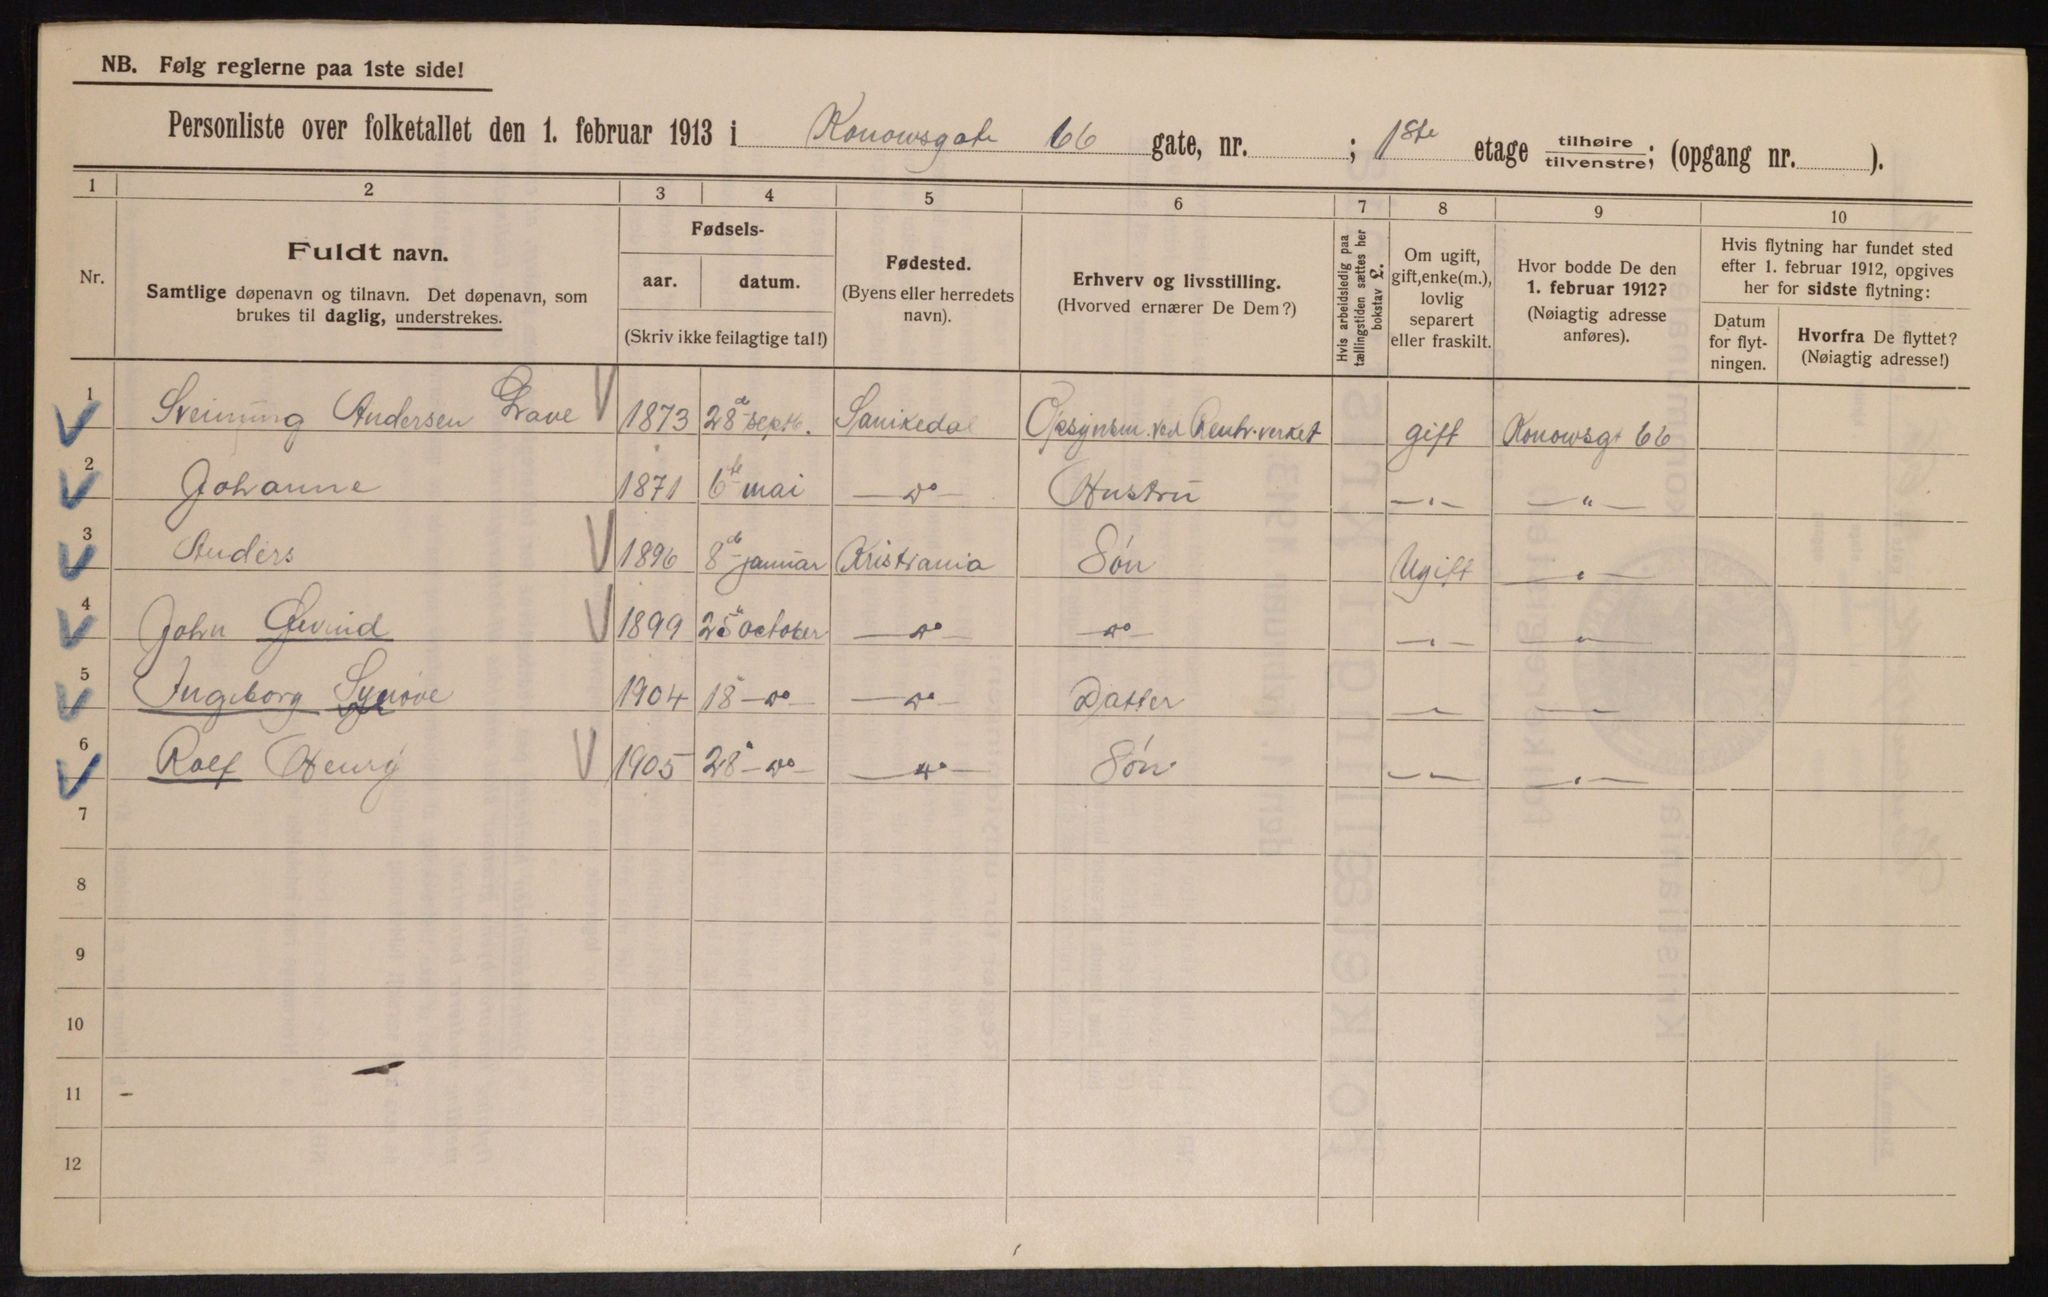 NB. Følg reglerne paa 1ste side!
Personliste over folketallet den 1. februar 1913 i Konowsgate 66 gate, nr. ; 1ste etage tilhøire tilvenstre; (opgang nr. ).
1 2 3 4 5 6 7 8 9 10
Nr.
Fuldt navn.
Samtlige døpenavn og tilnavn. Det døpenavn, som
brukes til daglig, understrekes.
Fødsels-
aar. datum.
(Skriv ikke feilagtige tal!)
Fødested.
(Byens eller herredets
navn).
Erhverv og livsstilling.
(Hvorved ernærer De Dem?)
Hvis arbeidsledig paa
tællingstiden sættes her
bokstav L.
Om ugift,
gift, enke(m.),
lovlig
separert
eller fraskilt.
Hvor bodde De den
1. februar 1912?
(Nøiagtig adresse
anføres).
Hvis flytning har fundet sted
efter 1. februar 1912, opgives
her for sidste flytning:
Datum
for flyt-
ningen.
Hvorfra De flyttet?
(Nøiagtig adresse!)
1 Sveinung Andersen 1873 28d septb. Sanikedal Opsynsm. ved Renh.verket gift Konowsgt 66
2 Johanne 1871 6te mai — do — Hustru — " — — " —
3 Anders 1896 8de januar Kristiania Søn Ugift — " —
4 John Øivind 1899 25 october — do — — do — — " — — " —
5 Ingeborg Synøve 1904 18 — do — — do — Datter — " — — " —
6 Rolf Henry 1905 28 — do — — do — Søn — " — — " —
7
8
9
10
11
12